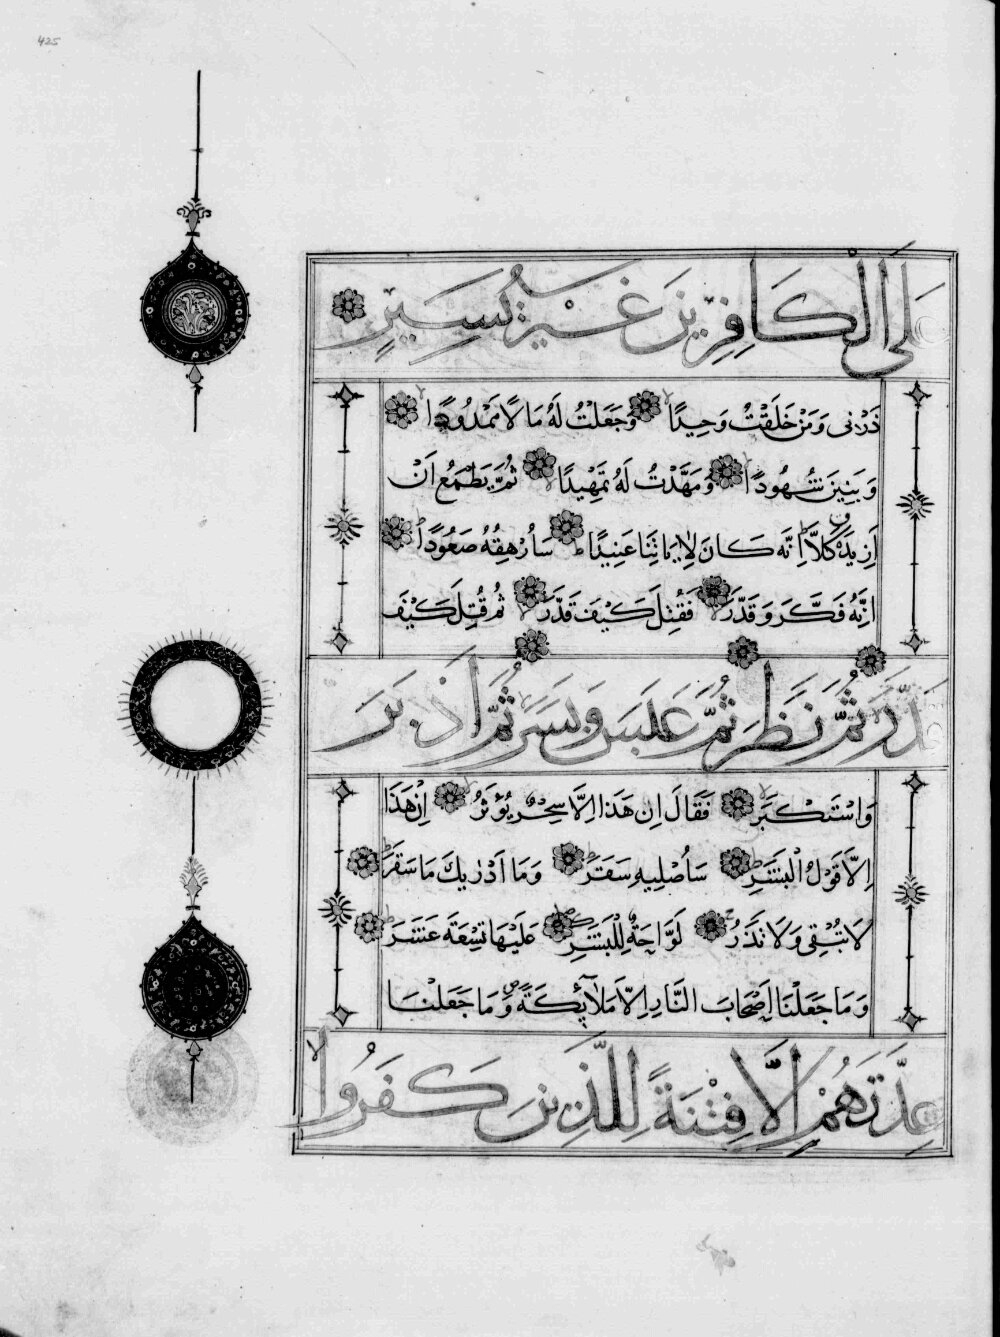 425
عَلَى الْكَافِرِينَ غَيْرُ يَسِيرٍ
ذَرْنِى وَمَنْ خَلَقْتُ وَحِيدًا وَجَعَلْتُ لَهُ مَالًا مَمْدُودًا
وَبَنِينَ شُهُودًا وَمَهَّدْتُ لَهُ تَمْهِيدًا ثُمَّ يَطْمَعُ اَنْ
اَزِيدَ كَلَّا اِنَّه كَانَ لِاٰيَاتِنَا عَنِيدًا سَاُرْهِقُهُ صَعُودًا
اِنَّهُ فَكَّرَ وَقَدَّرَ فَقُتِلَ كَيْفَ قَدَّرَ ثُمَّ قُتِلَ كَيْفَ
قَدَّرَ ثُمَّ نَظَرَ ثُمَّ عَبَسَ وَبَسَرَ ثُمَّ اَدْبَرَ
وَاسْتَكْبَرَ فَقَالَ اِنْ هَذَا اِلَّا سِحْرٌ يُؤْثَرُ اِنْ هَذَا
اِلَّا قَوْلُ الْبَشَرِ سَاُصْلِيهِ سَقَرَ وَمَا اَدْرٰيكَ مَا سَقَرُ
لَا تُبْقِى وَلَا تَذَرُ لَوَّاحَةٌ لِلْبَشَرِ عَلَيْهَا تِسْعَةَ عَشَرَ
وَمَا جَعَلْنَا اَصْحَابَ النَّارِ اِلَّا مَلٰٓئِكَةً وَمَا جَعَلْنَا
عِدَّتَهُمْ اِلَّا فِتْنَةً لِلَّذِينَ كَفَرُوا